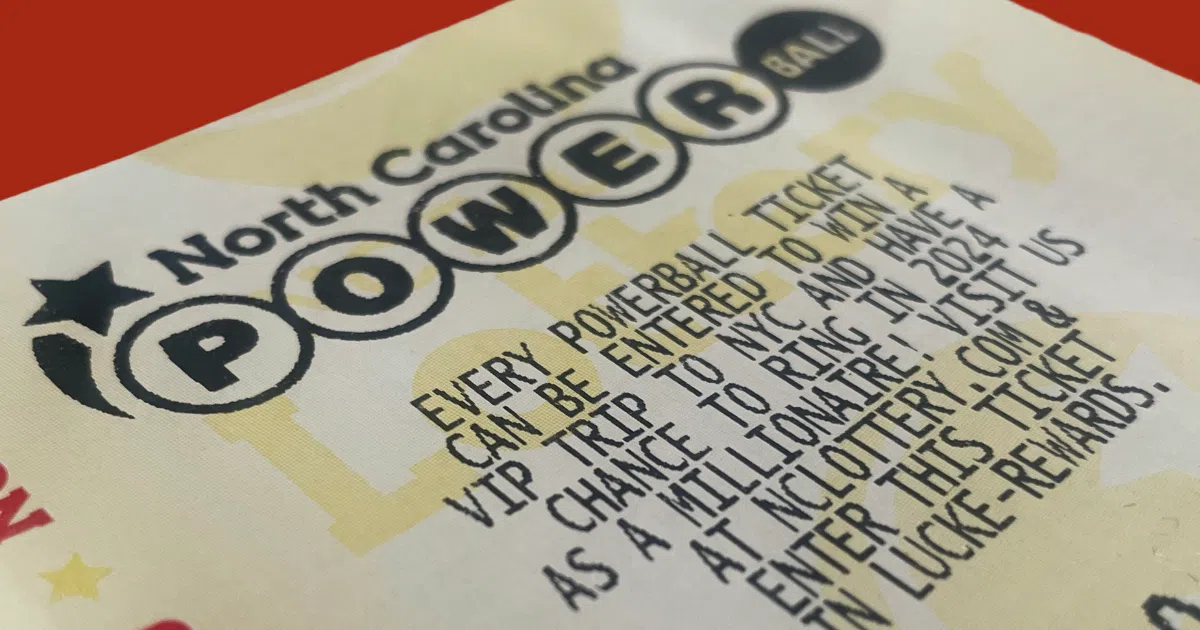 North Carolina
POWERBALL
EVERY POWERBALL TICKET
CAN BE ENTERED TO WIN A
VIP TRIP TO NYC AND HAVE A
CHANCE TO RING IN 2024
AS A MILLIONAIRE! VISIT US
AT NCLOTTERY.COM &
ENTER THIS TICKET
IN LUCKE-REWARDS.
Lottery
ON